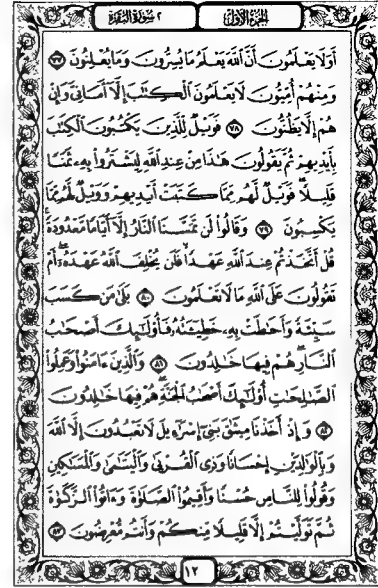 الجزء الأول ٢ سورة البقرة
أَوَلَا يَعْلَمُونَ أَنَّ ٱللَّهَ يَعْلَمُ مَا يُسِرُّونَ وَمَا يُعْلِنُونَ ٧٧
وَمِنْهُمْ أُمِّيُّونَ لَا يَعْلَمُونَ ٱلْكِتَٰبَ إِلَّآ أَمَانِىَّ وَإِنْ
هُمْ إِلَّا يَظُنُّونَ ٧٨ فَوَيْلٌ لِّلَّذِينَ يَكْتُبُونَ ٱلْكِتَٰبَ
بِأَيْدِيهِمْ ثُمَّ يَقُولُونَ هَٰذَا مِنْ عِندِ ٱللَّهِ لِيَشْتَرُوا۟ بِهِۦ ثَمَنًا
قَلِيلًا فَوَيْلٌ لَّهُم مِّمَّا كَتَبَتْ أَيْدِيهِمْ وَوَيْلٌ لَّهُم مِّمَّا
يَكْسِبُونَ ٧٩ وَقَالُوا۟ لَن تَمَسَّنَا ٱلنَّارُ إِلَّآ أَيَّامًا مَّعْدُودَةً
قُلْ أَتَّخَذْتُمْ عِندَ ٱللَّهِ عَهْدًا فَلَن يُخْلِفَ ٱللَّهُ عَهْدَهُۥٓ أَمْ
تَقُولُونَ عَلَى ٱللَّهِ مَا لَا تَعْلَمُونَ ٨٠ بَلَىٰ مَن كَسَبَ
سَيِّئَةً وَأَحَٰطَتْ بِهِۦ خَطِيٓـَٔتُهُۥ فَأُو۟لَٰٓئِكَ أَصْحَٰبُ
ٱلنَّارِ هُمْ فِيهَا خَٰلِدُونَ ٨١ وَٱلَّذِينَ ءَامَنُوا۟ وَعَمِلُوا۟
ٱلصَّٰلِحَٰتِ أُو۟لَٰٓئِكَ أَصْحَٰبُ ٱلْجَنَّةِ هُمْ فِيهَا خَٰلِدُونَ
٨٢ وَإِذْ أَخَذْنَا مِيثَٰقَ بَنِىٓ إِسْرَٰٓءِيلَ لَا تَعْبُدُونَ إِلَّا ٱللَّهَ
وَبِٱلْوَٰلِدَيْنِ إِحْسَانًا وَذِى ٱلْقُرْبَىٰ وَٱلْيَتَٰمَىٰ وَٱلْمَسَٰكِينِ
وَقُولُوا۟ لِلنَّاسِ حُسْنًا وَأَقِيمُوا۟ ٱلصَّلَوٰةَ وَءَاتُوا۟ ٱلزَّكَوٰةَ
ثُمَّ تَوَلَّيْتُمْ إِلَّا قَلِيلًا مِّنكُمْ وَأَنتُم مُّعْرِضُونَ ٨٣
١٢